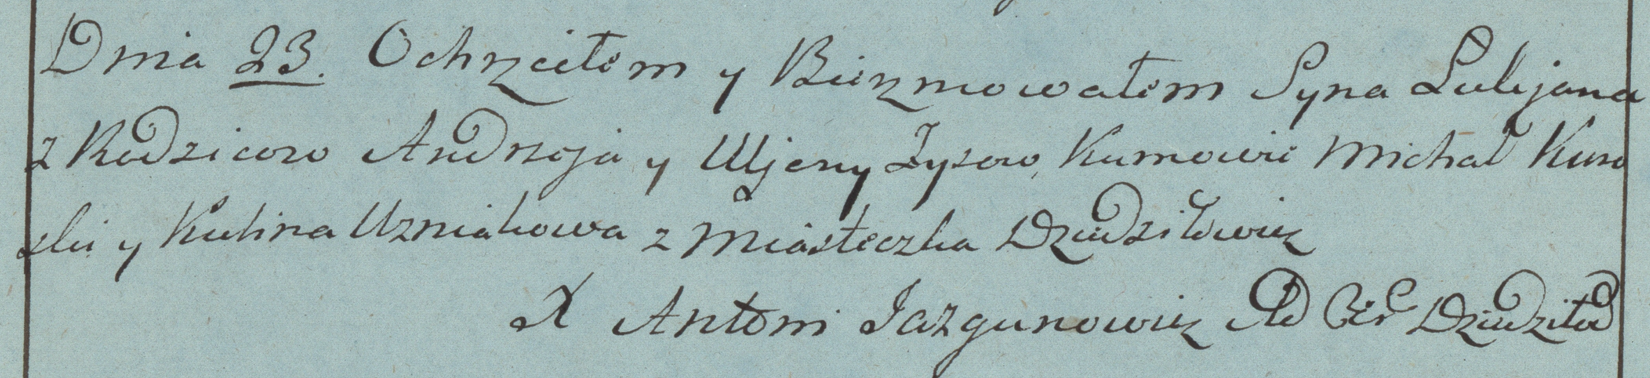 Dnia 23. Ochrzciłem y Bierzmowałem Syna Lulijana
z Rodzicow Andrzeja y Uljeny Zyzow, Kumowie Michał Kuro
ski y Kulina Uzniakowa z Miasteczka Dziedziłowicz
X Antoni Jazgunowicz Ad Cer Dziedziłod